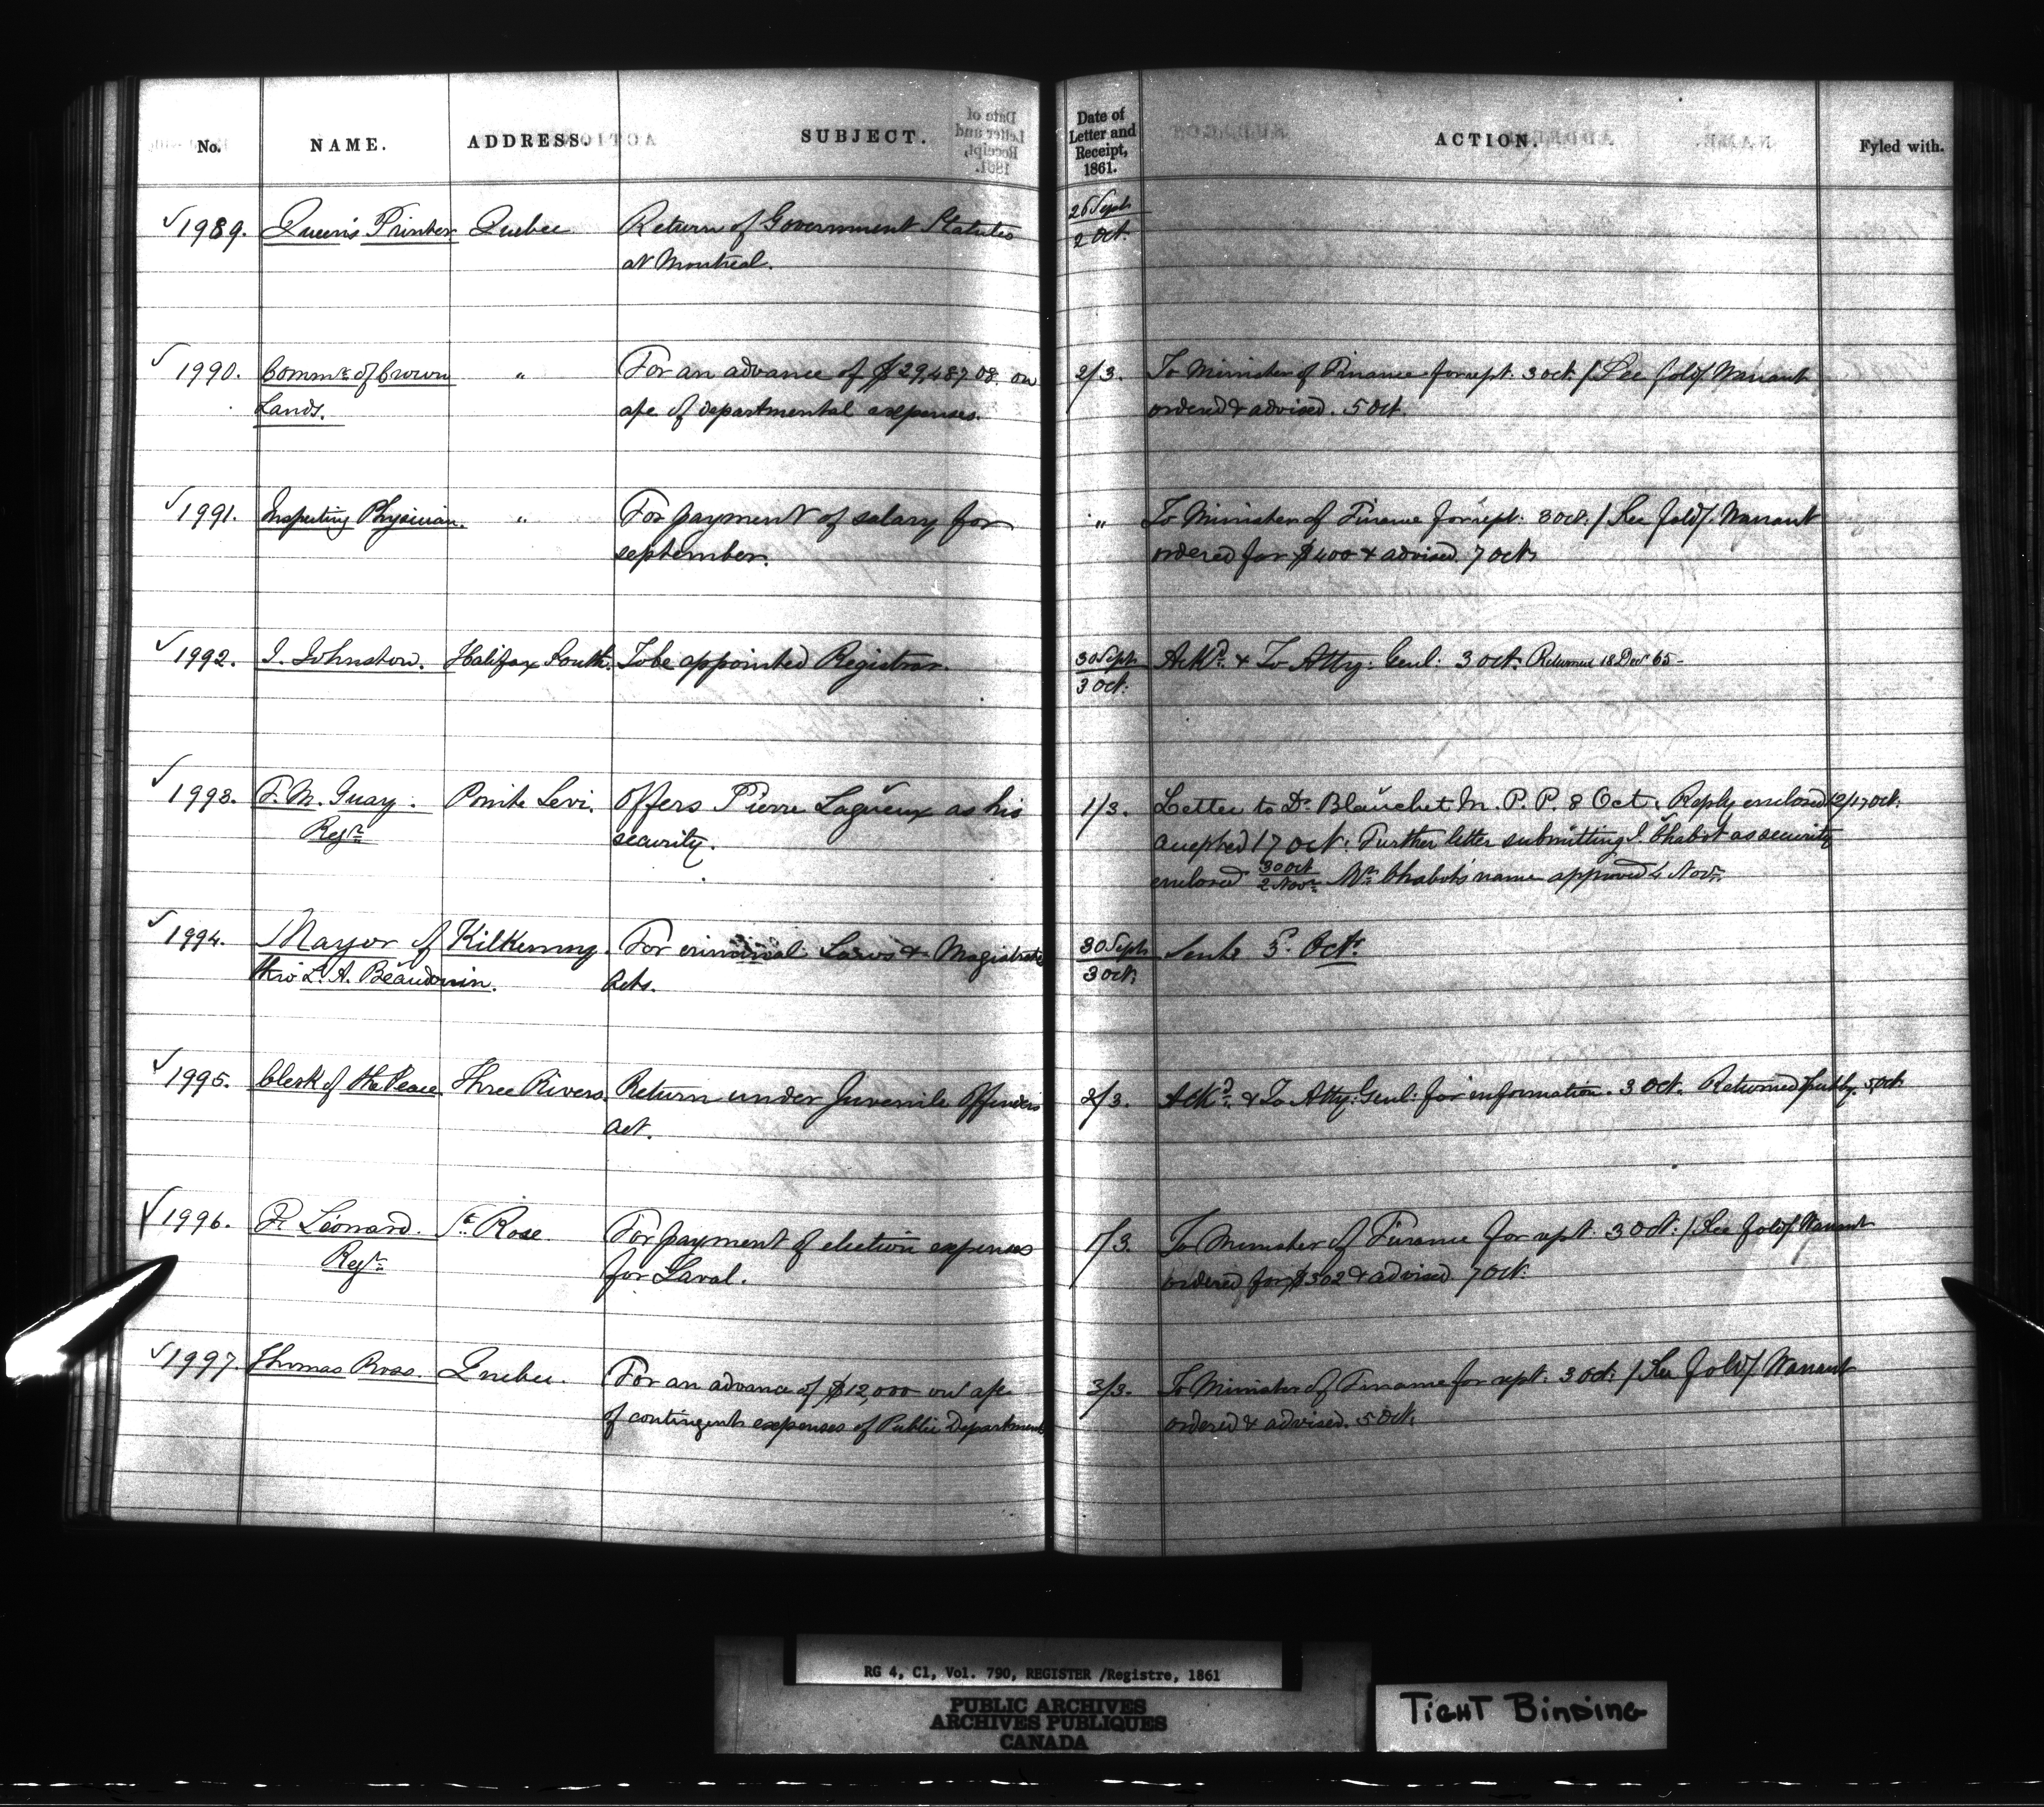 No. NAME. ADDRESS. SUBJECT. Date of Letter and Receipt, 1861. ACTION. Fyled with.
✓ 1989. Queen's Printer Quebec Return of Government Statutes 26 Sept
at Montreal. 2 Oct.
✓ 1990. Commr. of Crown " For an advance of $29,487 08. on 2/3. To Minister of Finance for rept. 3 Oct. / See fold/. Warrant
Lands. a/c of departmental expenses. ordered & advised. 5 Oct.
✓ 1991. Inspecting Physician. " For payment of salary for " To Minister of Finance for rept. 3 Oct. / See fold/. Warrant
september. ordered for $400 & advised 7 Oct.
✓ 1992. J. Johnston. Halifax South. To be appointed Registrar. 30 Sept Ackd. & To Atty. Genl. 3 Oct. Returned 18 Decr 65-
3 Oct.
✓ 1993. F. M. Guay. Pointe Levi. Offers Pierre Lagueux as his 1/3. Letter to Dr. Blanchet M. P. P. 8 Oct. Reply enclosed 12/17 Oct.
Regr. security. accepted 17 Oct. Further letter submitting J. Chabot as security
enclosed 30 Oct / 2 Novr. Mr. Chabot's name approved 4 Novr.
✓ 1994. Mayor of Kilkenny. For criminal Laws & Magistrates 30 Sept Sent 5. Octr.
thro L. A. Beaudouin. Acts. 3 Oct.
✓ 1995. Clerk of the Peace Three Rivers. Return under Juvenile Offenders 2/3. Ackd. & To Atty. Genl. for information. 3 Oct. Returned 5 Oct
Act.
✓ 1996. F. Léonard. Ste. Rose For payment of election expenses 1/3. To Minister of Finance for rept. 3 Oct. / See fold/. Warrant
Regr. for Laval. ordered for $302 & advised 7 Oct.
✓ 1997. Thomas Ross. Quebec. For an advance of $12,000 on a/c 3/3. To Minister of Finance for rept. 3 Oct. / See fold/. Warrant
of contingent expenses of Public Department ordered & advised. 5 Oct.
RG 4, C1, Vol. 790, REGISTER /Registre, 1861
PUBLIC ARCHIVES
ARCHIVES PUBLIQUES
CANADA
TIGHT BINDING